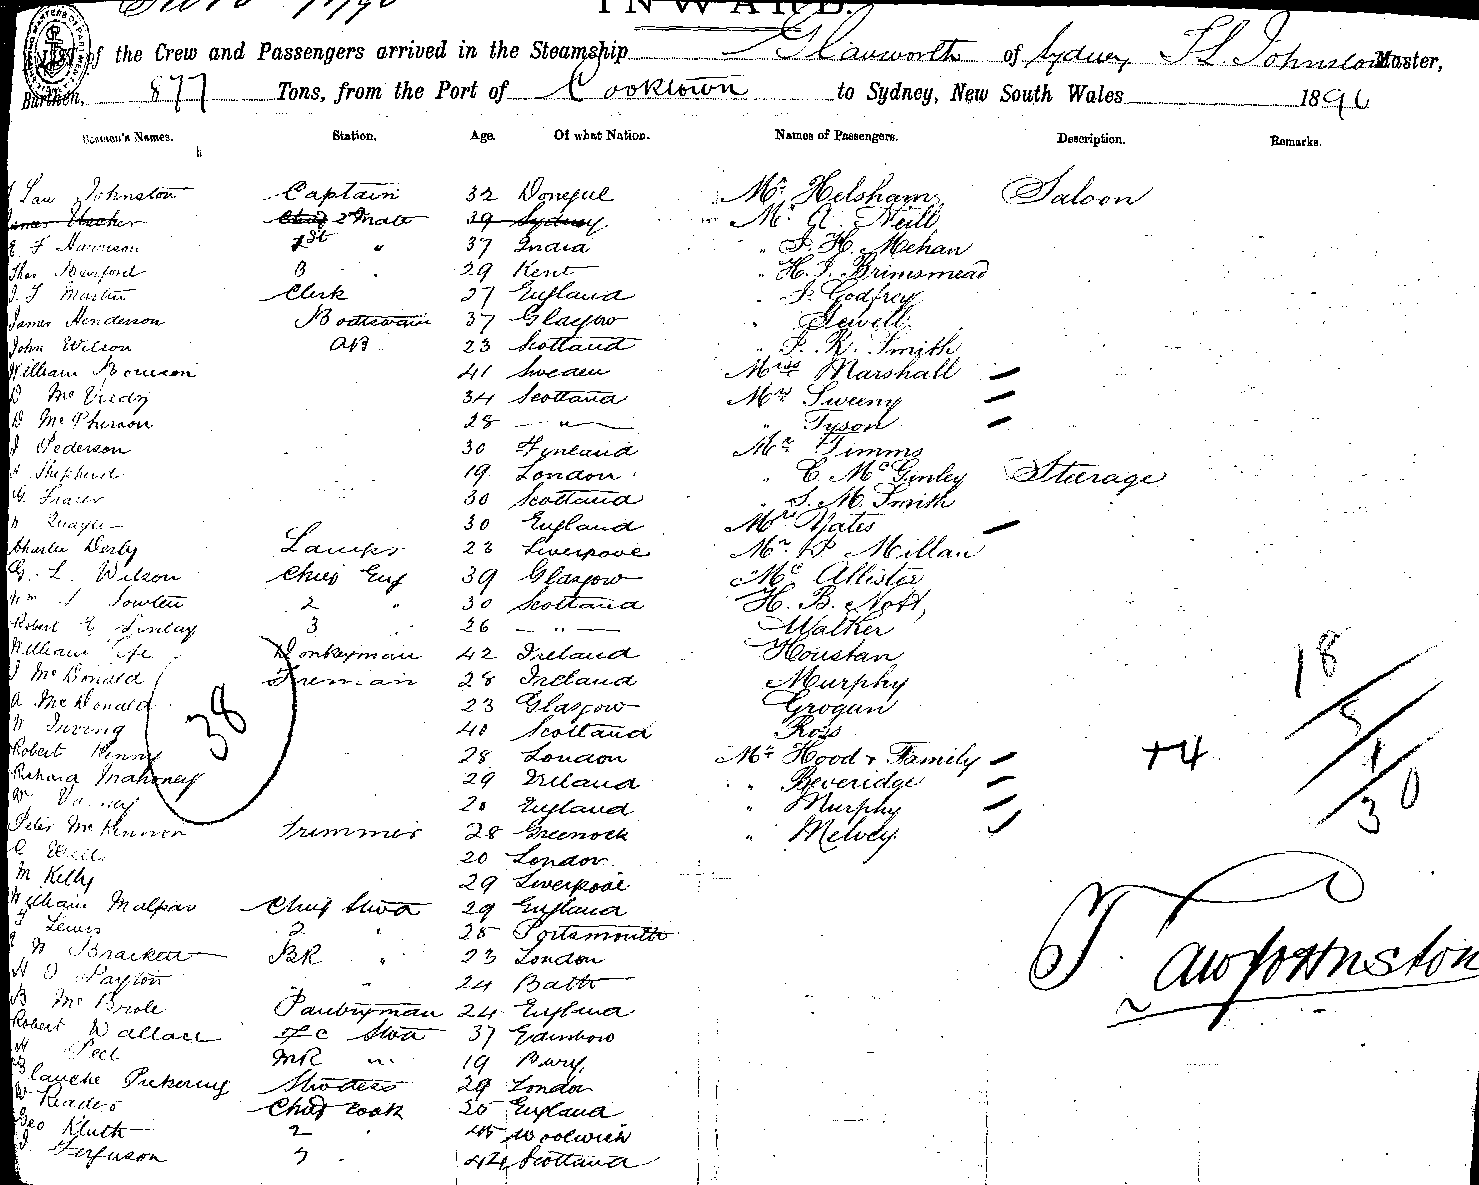 INWARD.
List of the Crew and Passengers arrived in the Steamship Glanworth of Sydney, T L Johnston Master,
Burthen, 877 Tons, from the Port of Cooktown to Sydney, New South Wales 1896
Seamen's Names. Station. Age. Of what Nation. Names of Passengers. Description. Remarks.
T Law Johnston Captain 32 Donegal Mr Helsham Saloon
James Tucker 2 Mate 29 Sydney Mr A. Neill
E F Harrison 1st " 37 India " J. H. Mehan
Thos 3 " 29 Kent " H. J. Brimsmead
J. F Martin Clerk 27 England " J. Godfrey
James Henderson Boatswain 37 Glasgow " Sewell
John Wilson AB 23 Scotland " J. K. Smith
William 41 Sweden Miss Marshall
D 34 Scotland Mrs Sweeny
D McPherson 28 — " — " Tyson
J Pederson 30 Finland Mr Timms
A Shepherd 19 London " C. McGinley Steerage
G. Fraser 30 Scotland " S. M. Smith
W Quayle 30 England Mrs Yates
Charles Derby Lamps 23 Liverpool Mr P. Millan
G. L. Wilson Chief Eng 39 Glasgow McAllister
Wm 2 " 30 Scotland H. B. Nott,
Robert Finlay 3 " 26 — " — Walker
William Donkeyman 42 Ireland Houstan
J McDonald Fireman 28 Ireland Murphy
A McDonald 23 Glasgow Grogan
W Irving 40 Scotland Ross
Robert Kenny 28 London Mrs Hood & Family
Richard Mahoney 29 Ireland " Beveridge
W 20 England " Murphy
Peter McKinnon Trimmer 28 Greenock " Melvey
C 20 London
M Kelly 29 Liverpool
William Malpas Chief Stwd 29 England
F Lewis 2 " 25 Portsmouth
W Brackett BR " 23 London
H J Payton " 24 Bath
B McBride Pantryman 24 England
Robert Wallace F C Stwd 37 Edinboro
H Peel MR " 19 Bury,
Blanche Pickering Stwdess 29 London
W Readers Chief Cook 25 England
Geo Kluth 2 " 45 Woolwich
J Ferguson 3 " 42 Scotland
38
+4
18
5
1
30
T. Law Johnston